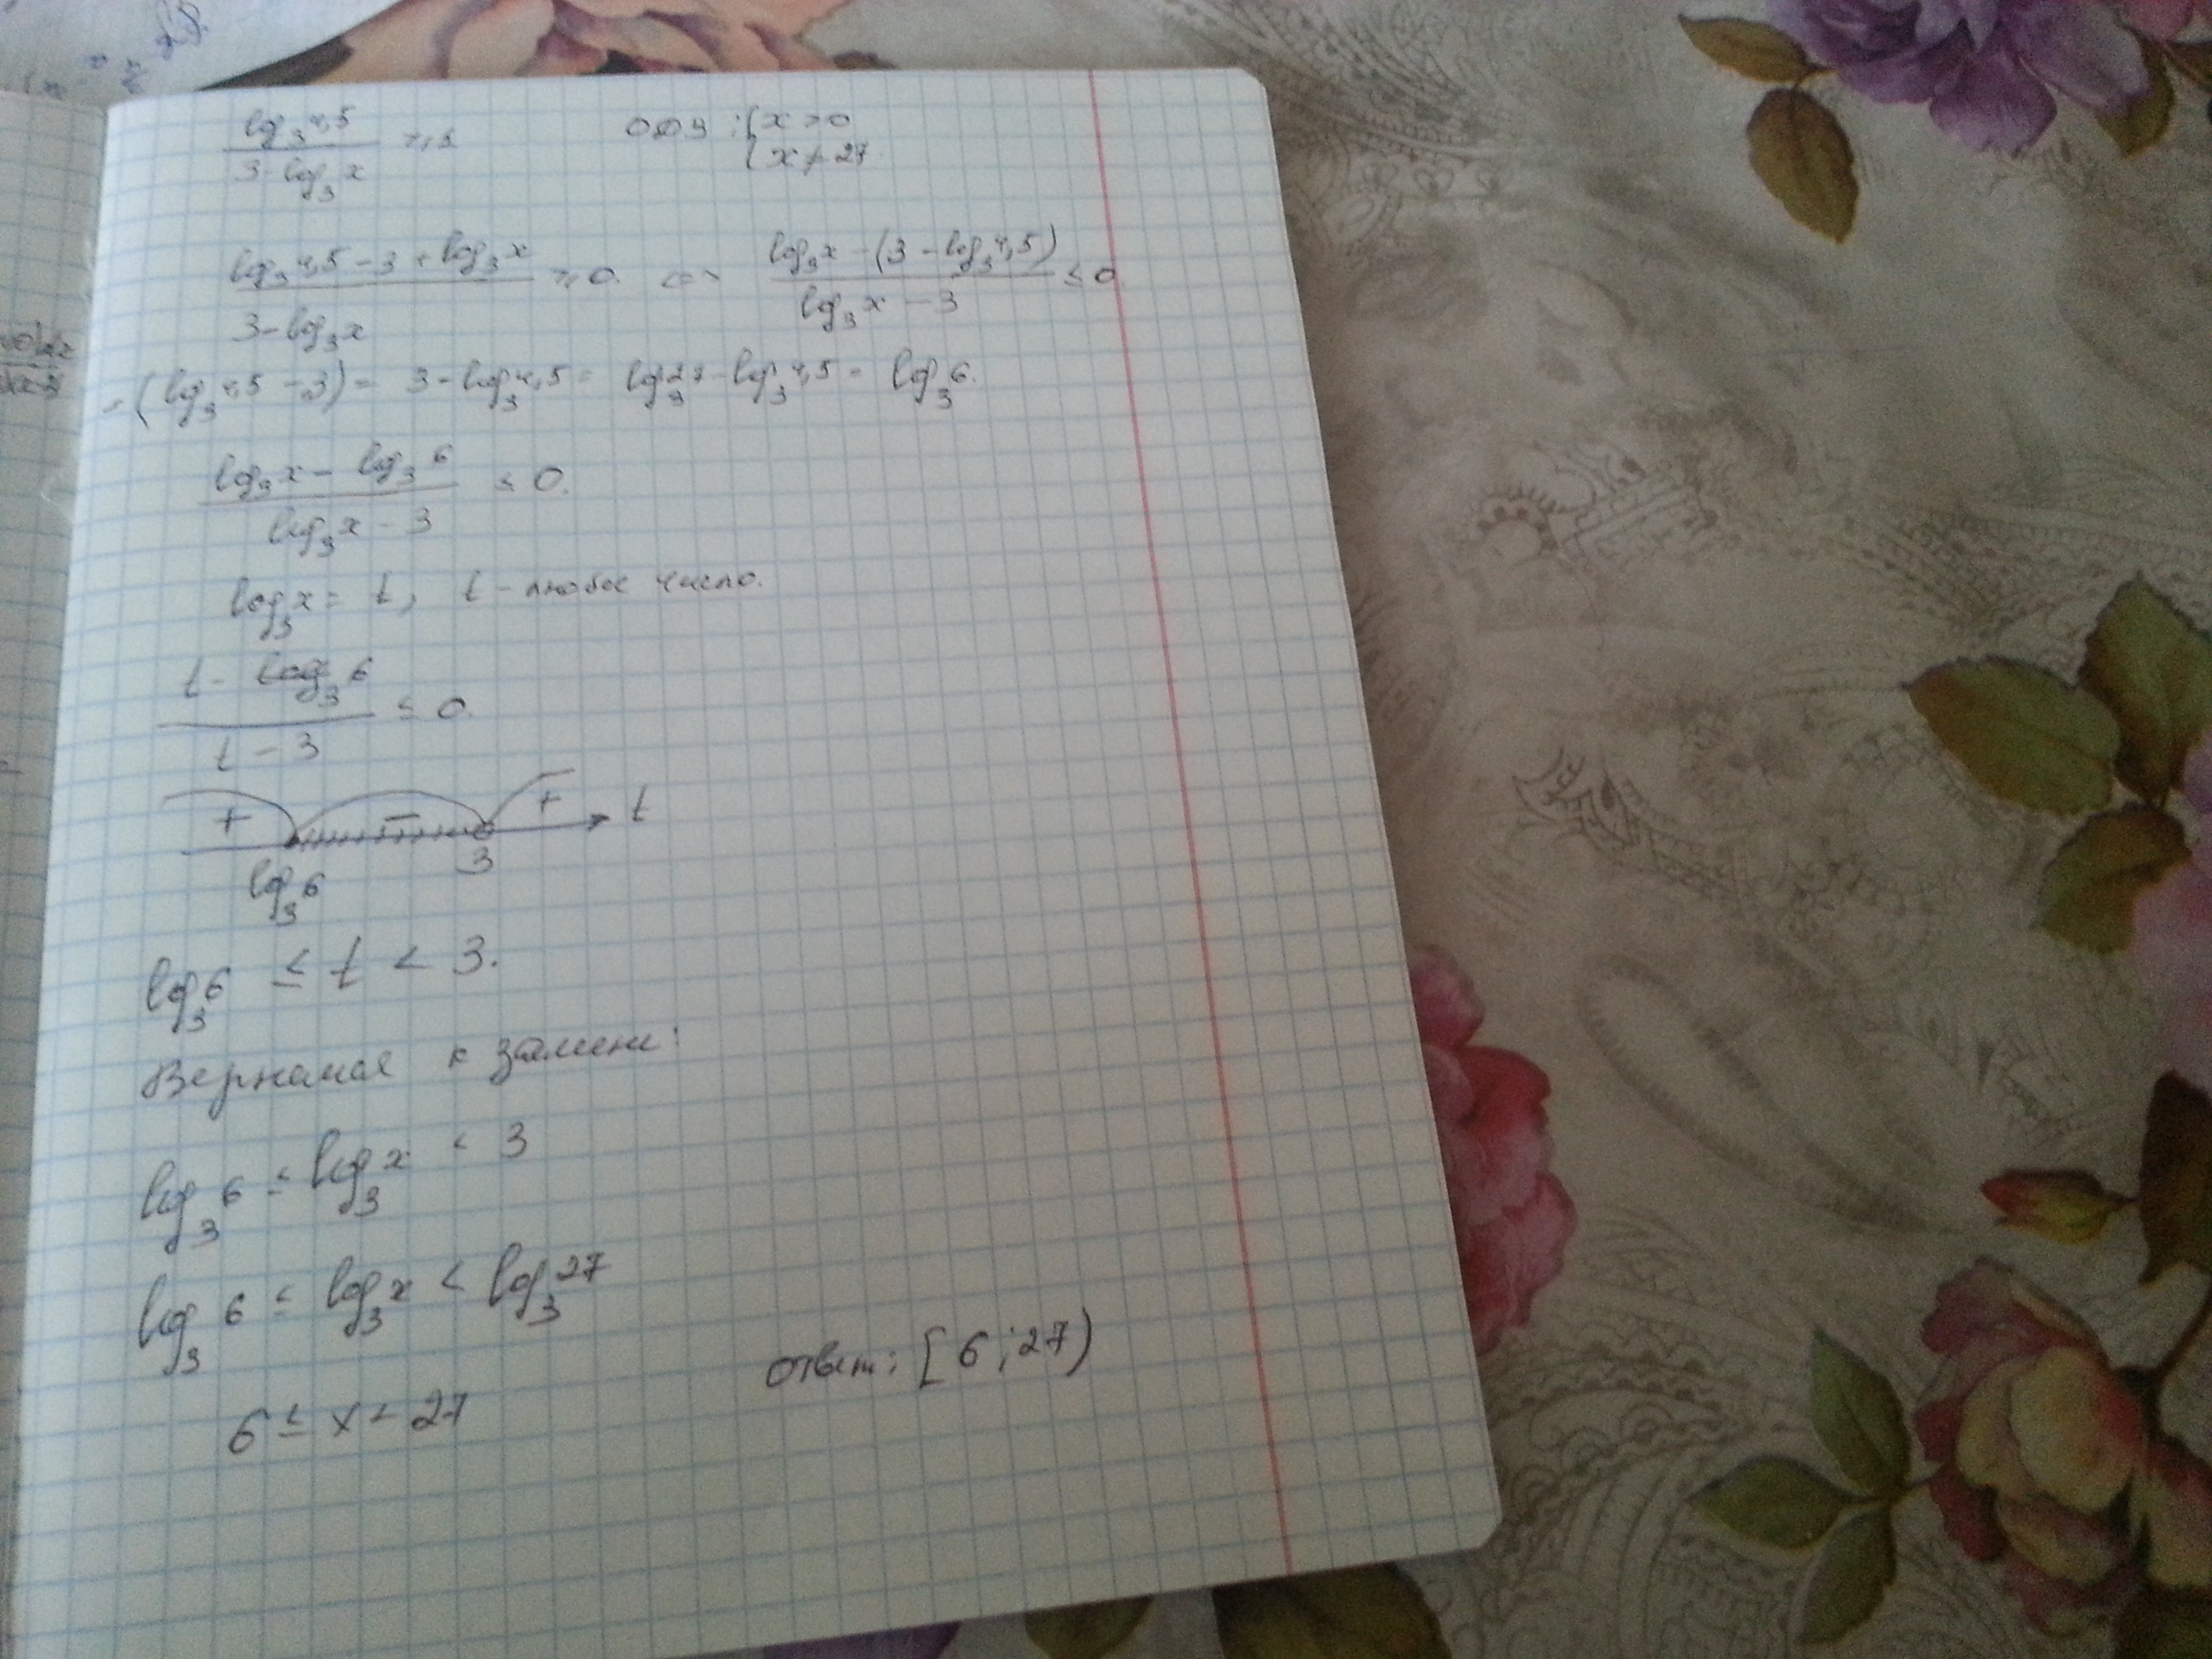 log₃4,5 / (3 - log₃x) ≥ 1 ОДЗ: { x > 0
{ x ≠ 27.
(log₃4,5 - 3 + log₃x) / (3 - log₃x) ≥ 0. <=> (log₃x - (3 - log₃4,5)) / (log₃x - 3) ≤ 0.
-(log₃4,5 - 3) = 3 - log₃4,5 = log₃27 - log₃4,5 = log₃6.
(log₃x - log₃6) / (log₃x - 3) ≤ 0.
log₃x = t, t - любое число.
(t - log₃6) / (t - 3) ≤ 0.
+ - + t
log₃6 3
log₃6 ≤ t < 3.
Вернемся к замене:
log₃6 ≤ log₃x < 3
log₃6 ≤ log₃x < log₃27
6 ≤ x < 27
Ответ: [6; 27)